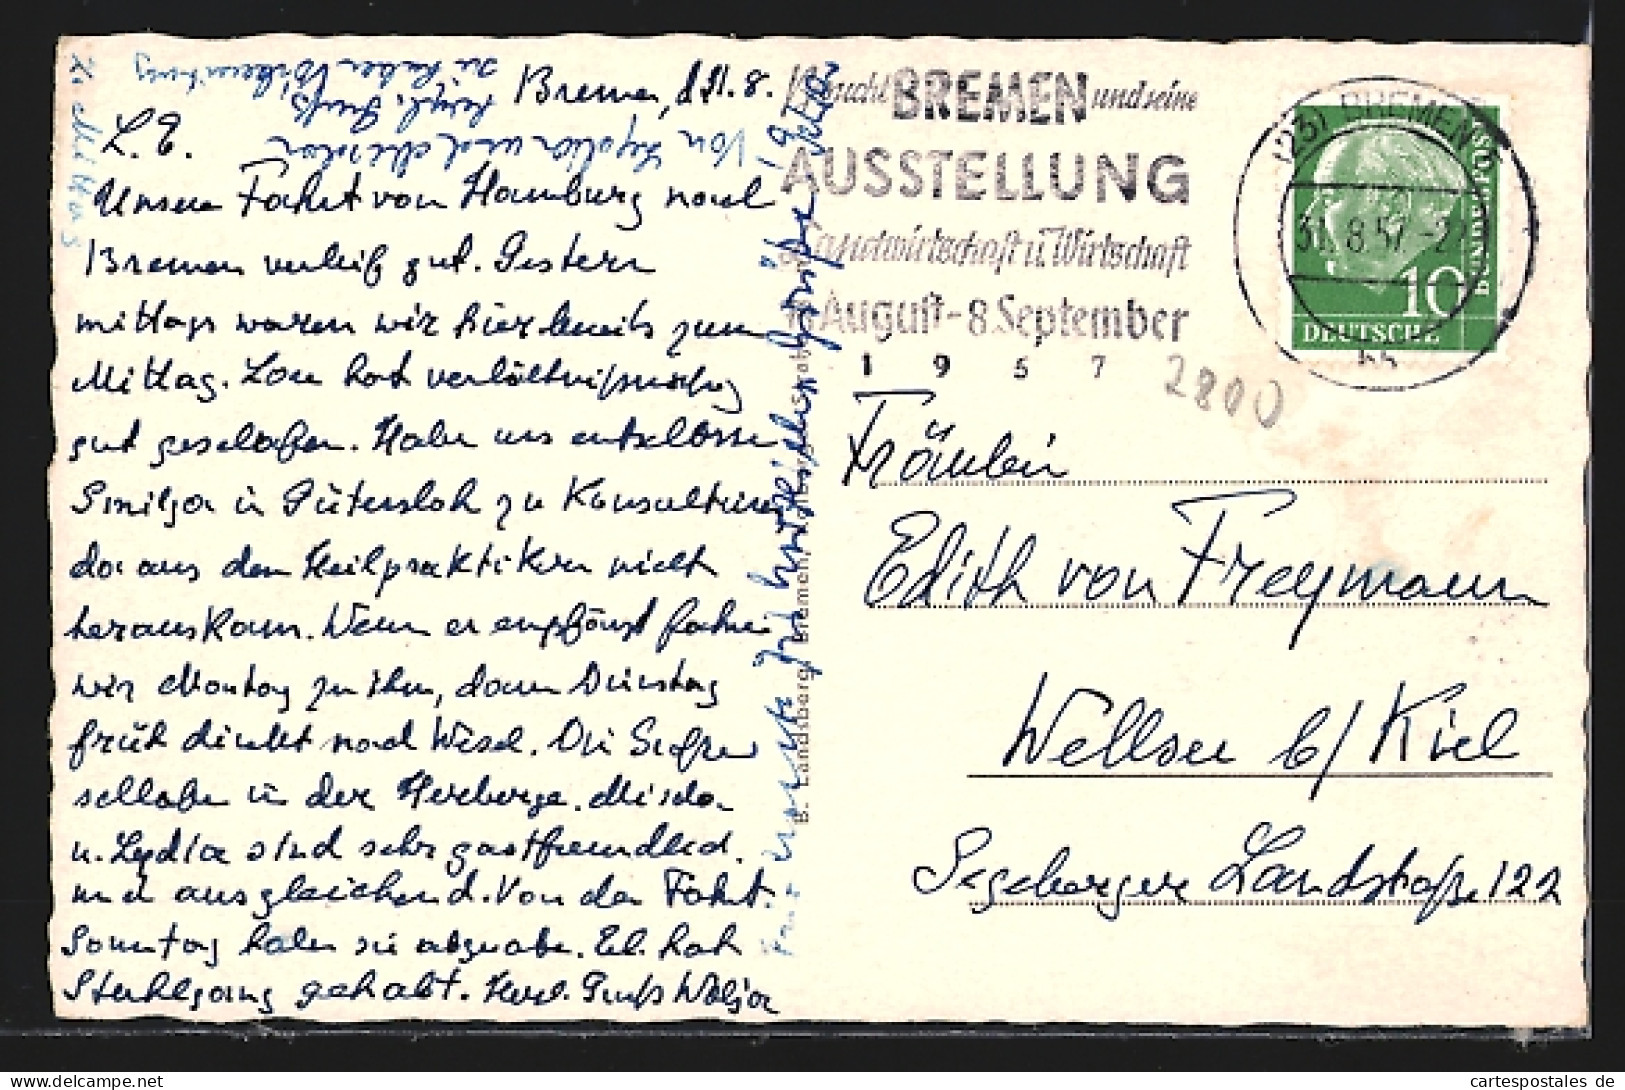 Bremen, d 31. 8.
L. E.
Unsere Fahrt von Hamburg nach
Bremen verlief gut. Gestern
mittags waren wir hier bereits zum
Mittag. Lou hat verhältnismäßig
gut geschlafen. Haben uns entschlossen
in Gütersloh zu Konsultieren
da aus dem Heilpraktiker nicht
herauskam. Wenn er empfängt fahren
wir Montag zu ihm, dann Dienstag
früh direkt nach Wesel. Die
schlafen in der Herberge. Mischa
u. Lydia sind sehr gastfreundlich.
und ausgleichend. Von der Fahrt
Sonntag haben sie abgeraten. hat
Stuhlgang gehabt. Herzl. Gruß Wolja
Von Lydia und Mischa
herzl. Gruß
BREMEN und seine
AUSSTELLUNG
Landwirtschaft u. Wirtschaft
August - 8. September
1957
2800
(23) BREMEN
31. 8. 57
DEUTSCHE
BUNDESPOST
10
Fräulein
Edith von Freymann
Wellsee b/ Kiel
Segeberger Landstraße 122
B. Landsberg, Bremen
cartespostales de